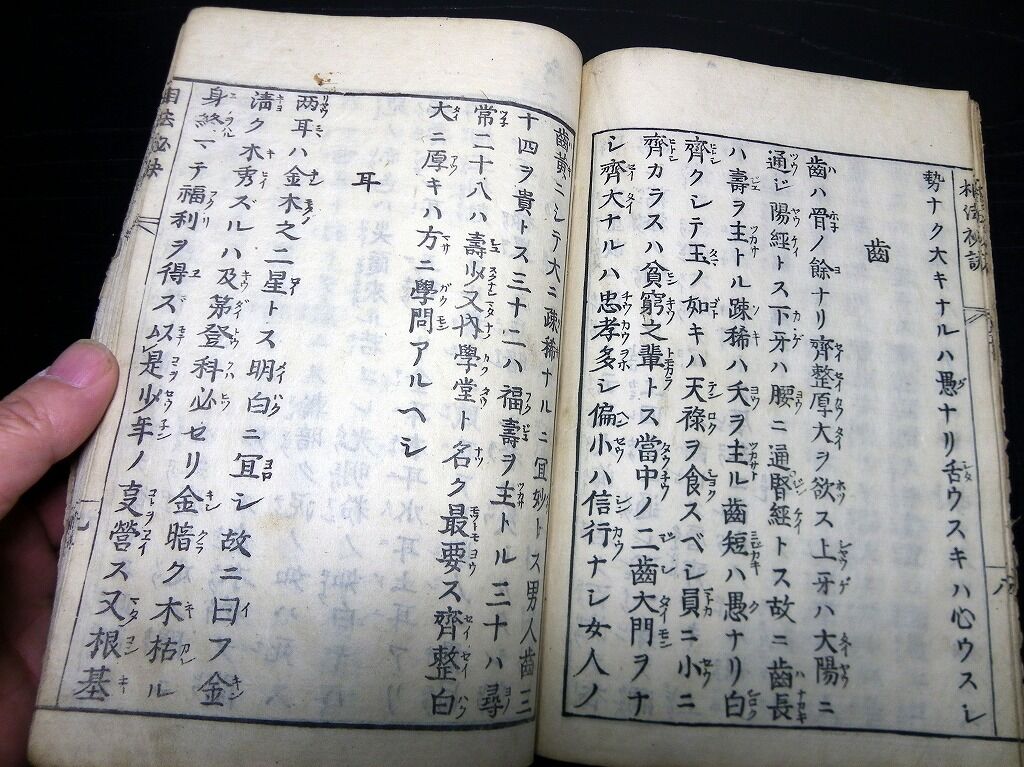 勢ナク大キナルハ愚ナリ舌ウスキハ心ウスシ
齒
齒ハ骨ノ餘ナリ齊整厚大ヲ欲ス上牙ハ大陽ニ
通ジ陽經トス下牙ハ腰ニ通腎經トス故ニ齒長
ハ壽ヲ主トル疎稀ハ夭ヲ主ル齒短ハ愚ナリ白
齊クシテ玉ノ如キハ天祿ヲ食スベシ員ニ小ニ
齊カラスハ貧窮之輩トス當中ノ二齒大門ヲナ
シ齊大ナルハ忠孝多シ偏小ハ信行ナシ女人ノ
齒黄ニシテ大ニ疎稀ナルニ宜妙トス男人齒三
十四ヲ貴トス三十二ハ福壽ヲ主トル三十ハ尋
常二十八ハ壽少又内學堂ト名ク最要ス齊整白
大ニ厚キハ方ニ學問アルヘシ
耳
两耳ハ金木之二星トス明白ニ宜シ故ニ曰フ金
淸ク木秀ズルハ及第登科必セリ金暗ク木枯ル
身終マテ福利ヲ得ズ以是少年ノ叓營ス又根基
相法必決